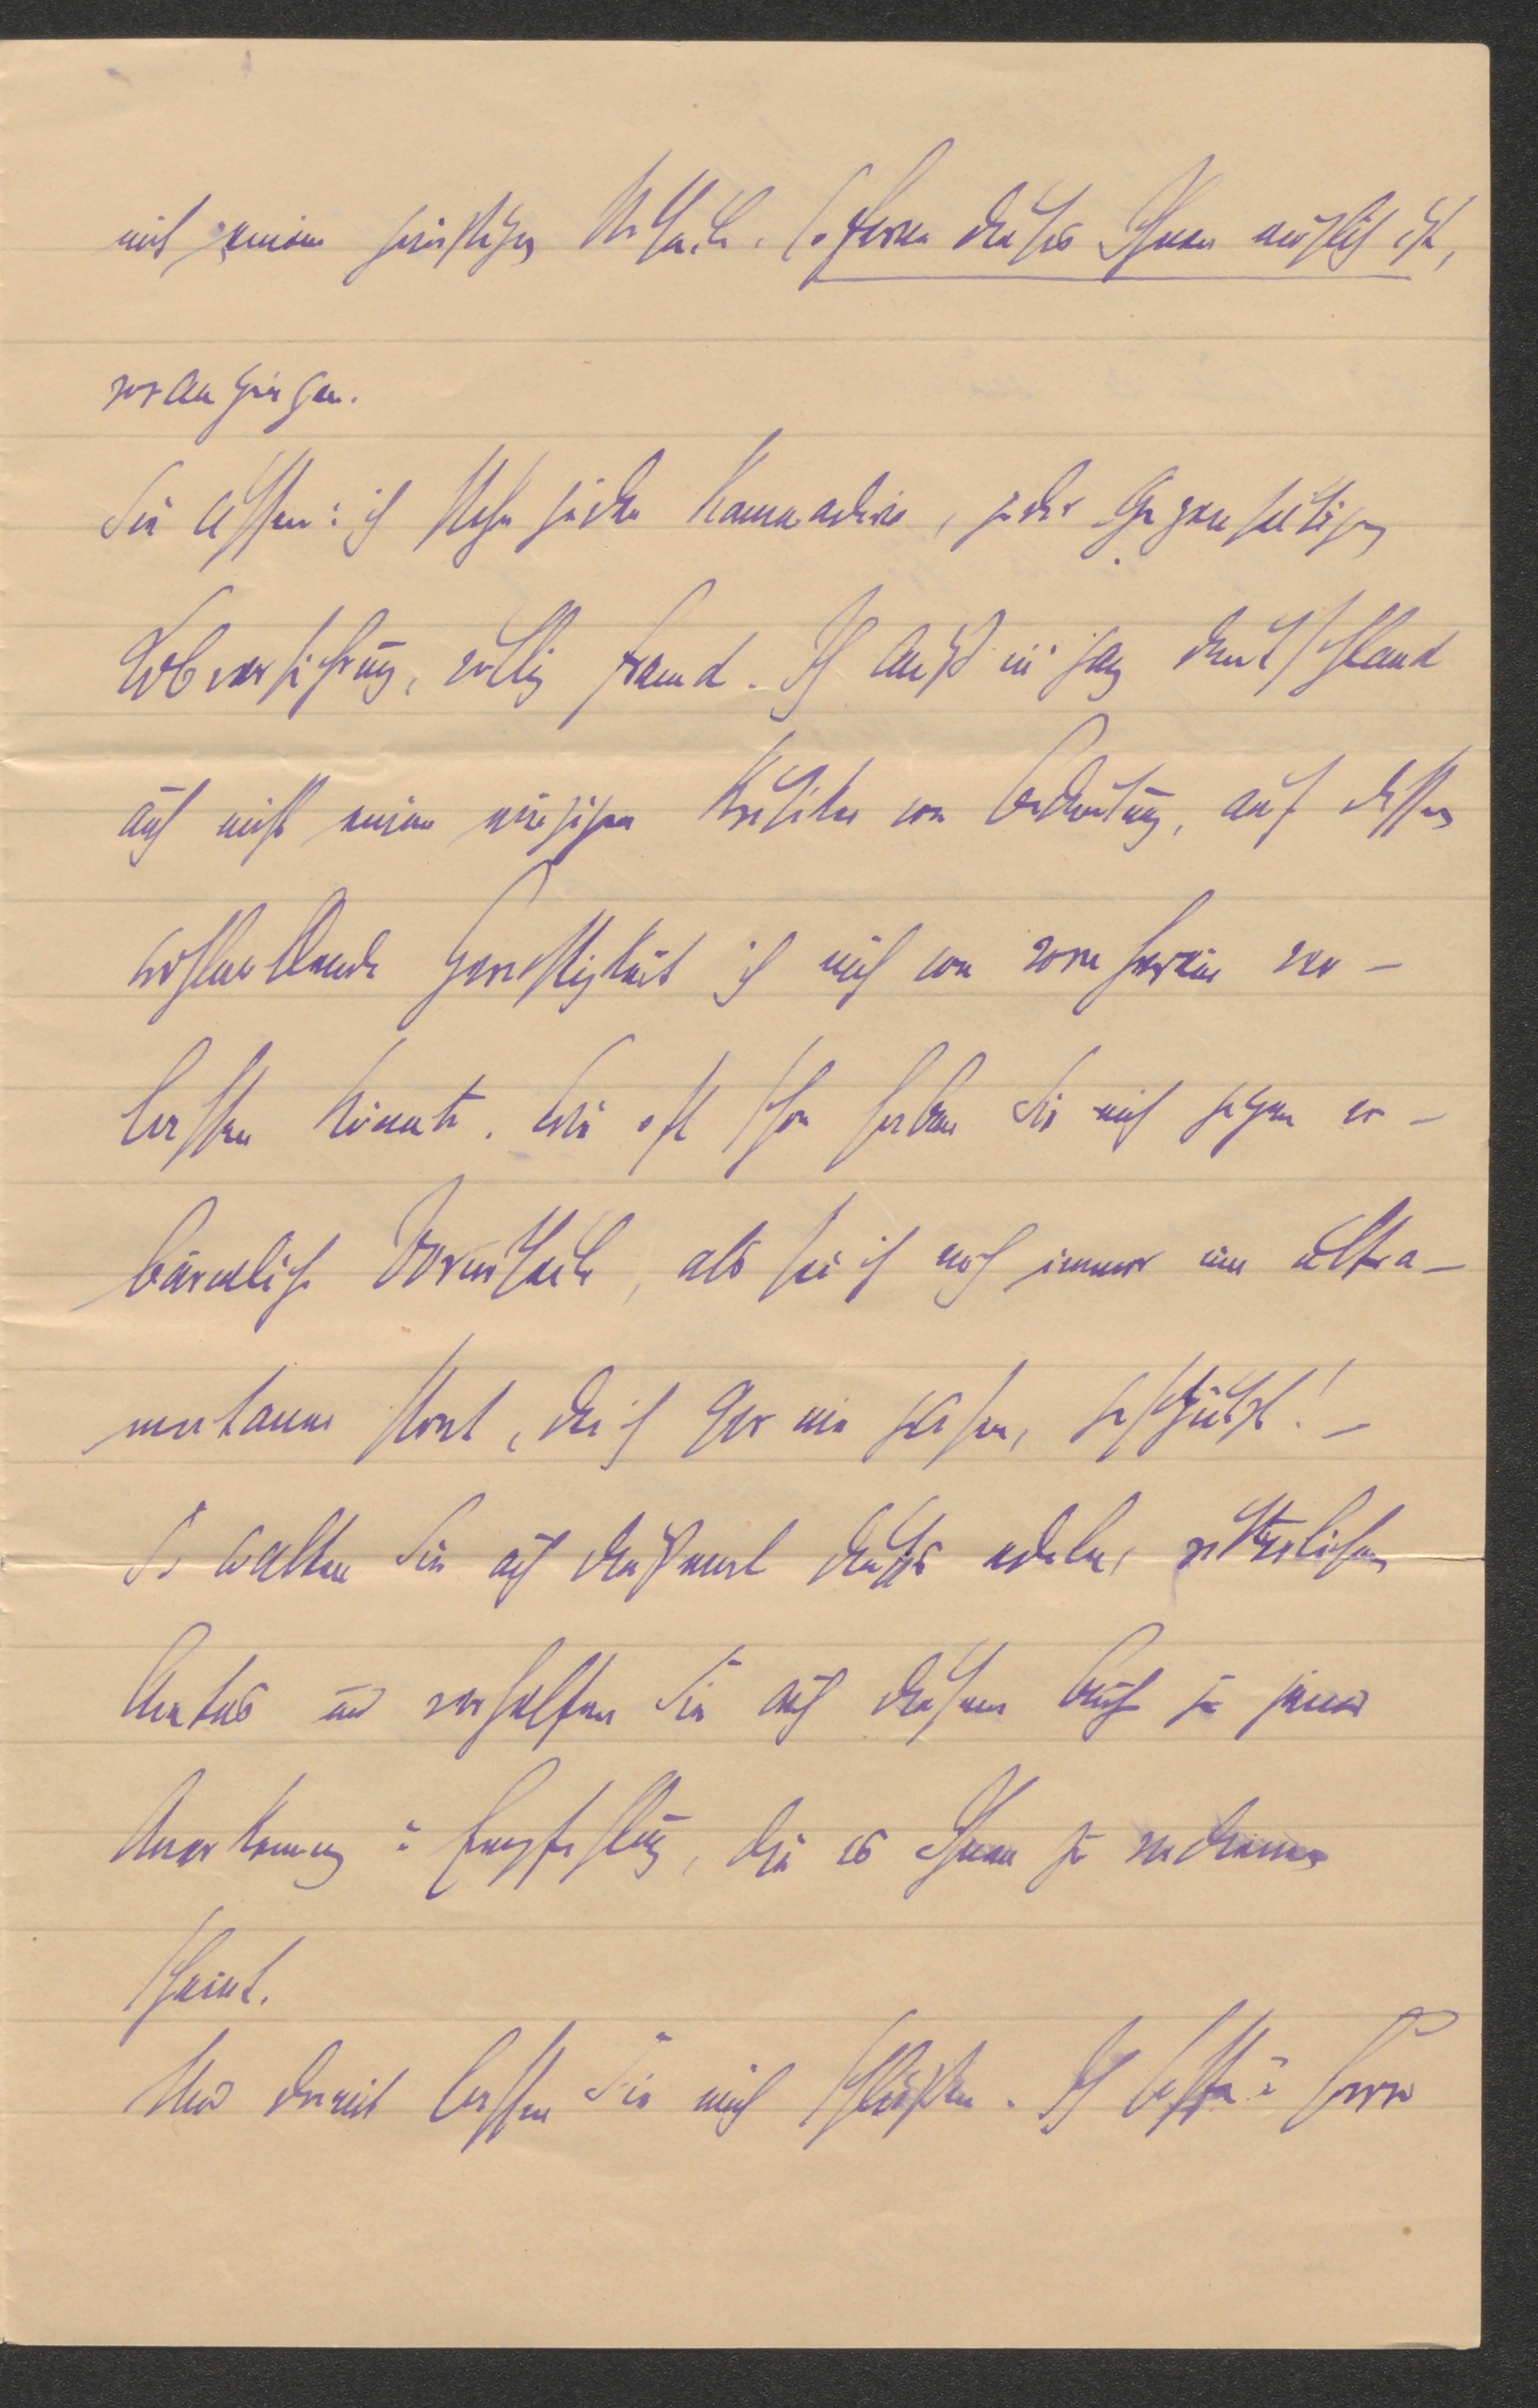 mit einem günstigen Urteile, sofern dieses Ihnen möglich ist,
vorangingen.
Sie wissen: ich stehe jeder Kameraderie, jeder gegenseitigen
Lobversicherung, völlig fremd. Ich weiß in ganz Deutschland
auch nicht einen einzigen Kritiker von Bedeutung, auf dessen
wohlwollende Gerechtigkeit ich mich von vornherein ver-
lassen könnte. Wie oft schon haben Sie mich gegen er-
bärmliche Vorurteile, als sei ich noch immer ein ultra-
montaner, der ich gar nie gewesen, geschützt! –
So walten Sie auch diesmal dieses edeln, ritterlichen
Amtes und verhelfen Sie auch diesem Buch zu jener
Anerkennung u Empfehlung, die es Ihnen zu verdienen
scheint.
Und damit lassen Sie mich schließen. Ich hoffe u